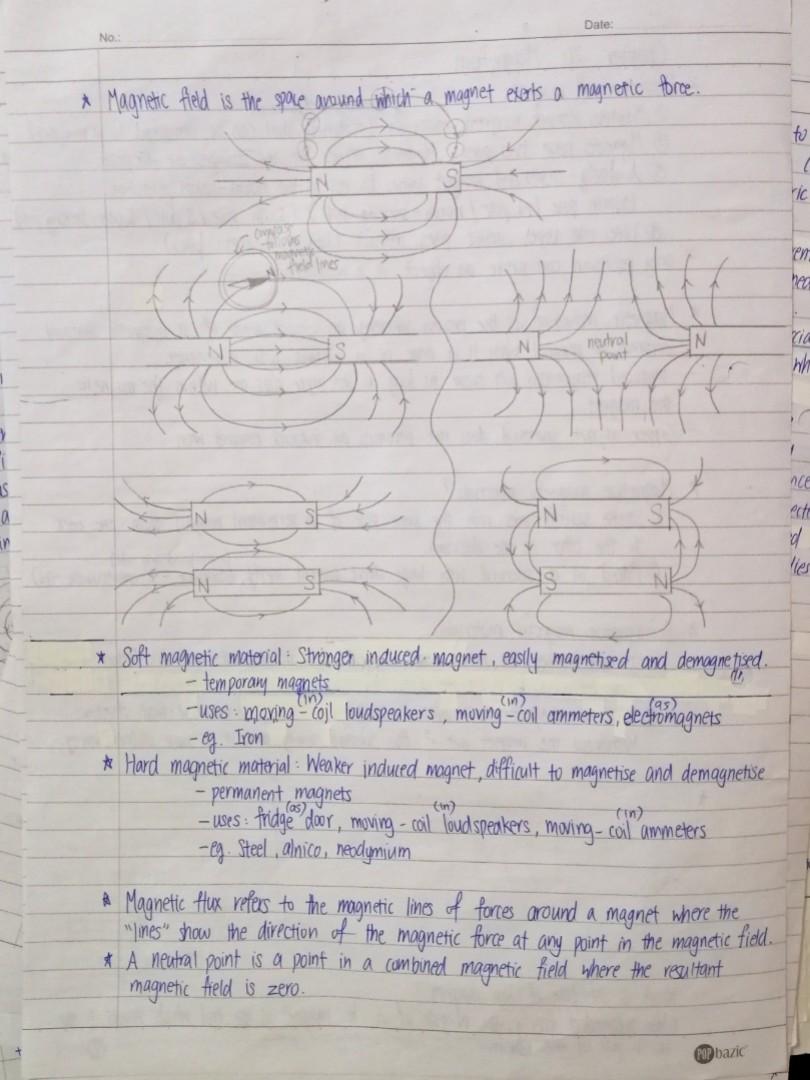 No.:
Date:
* Magnetic field is the space around which a magnet exerts a magnetic force.
N S
compass
follows
magnetic
field lines
N
N S
N neutral N
point
N S
N S
N S
S N
* Soft magnetic material : Stronger induced magnet, easily magnetised and demagnetised.
- temporary magnets
(in) (in) (as)
- uses : moving-coil loudspeakers, moving-coil ammeters, electromagnets
- eg. Iron
* Hard magnetic material : Weaker induced magnet, difficult to magnetise and demagnetise
- permanent magnets
(as) (in) (in)
- uses : fridge door, moving-coil loudspeakers, moving-coil ammeters
- eg. Steel, alnico, neodymium
* Magnetic flux refers to the magnetic lines of forces around a magnet where the
"lines" show the direction of the magnetic force at any point in the magnetic field.
* A neutral point is a point in a combined magnetic field where the resultant
magnetic field is zero.
POP bazic